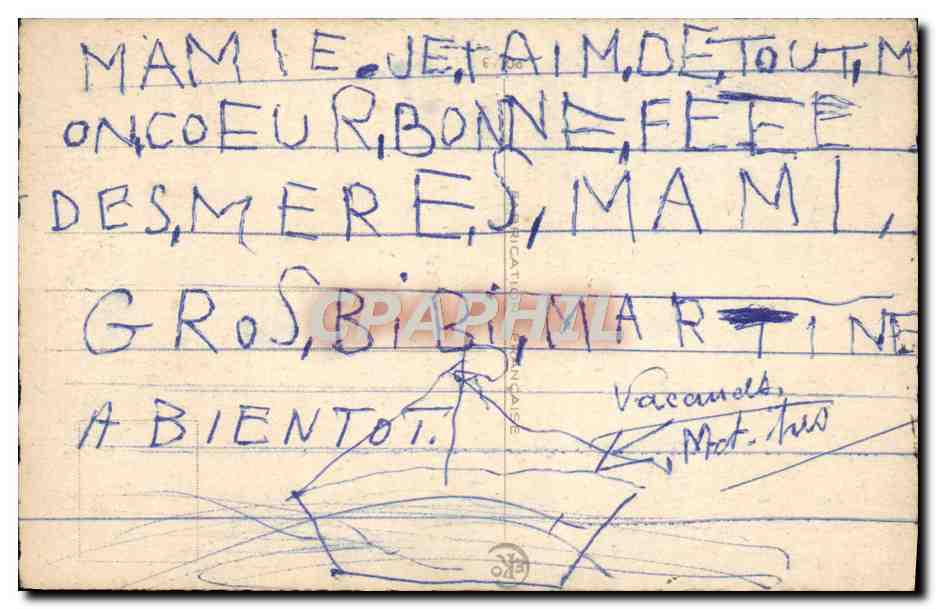 MAMIE.JE,TAIM,DE,TOUT,M
ON,COEUR,BONNE,FETE
DES,MERES,MAMI,
GROS,BiBi,MARTINE
A BIENTOT.
FABRICATION FRANÇAISE
CPARHIL